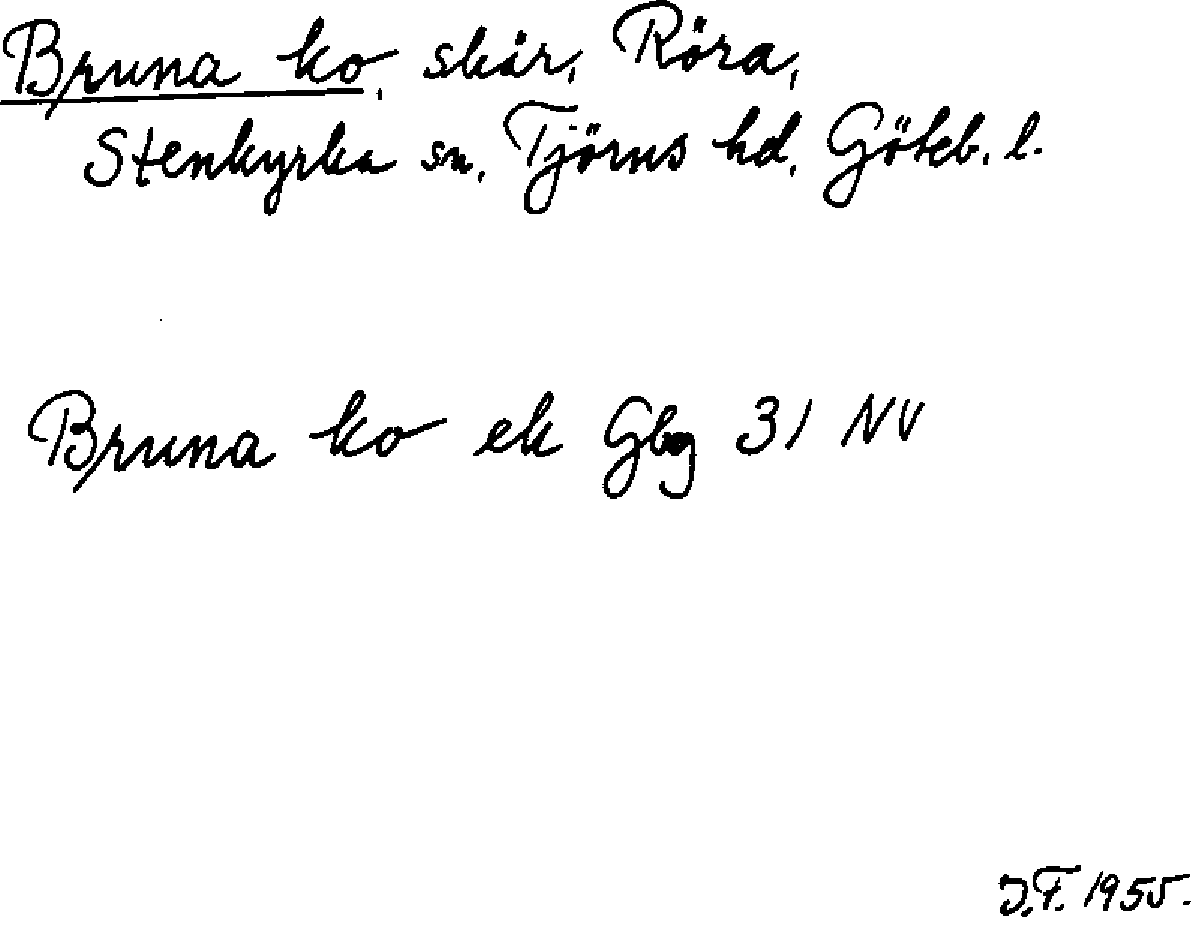 Bruna ko, skär, Röra,
Stenkyrka sn, Tjörns hd, Göteb. l.
Bruna ko ek Gbg 31 NV
J.F. 1955.